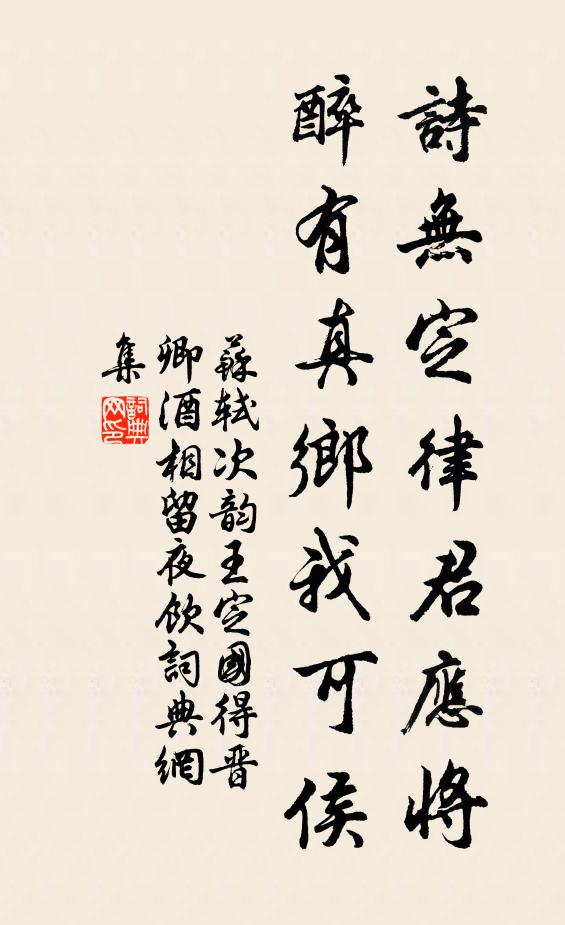 詩無定律君應將
醉有真鄉我可侯
蘇軾次韵王定國得晋
卿酒相留夜飲詞典網
集
詞典
网印